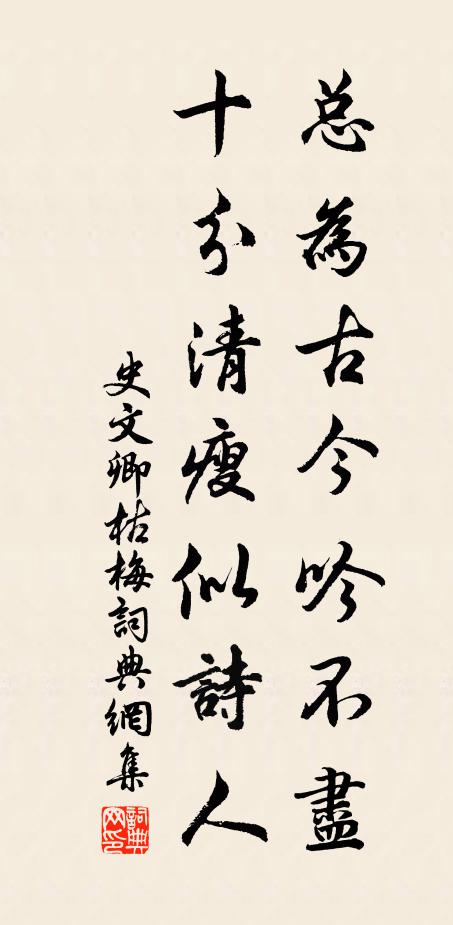 总為古今吟不盡
十分清瘦似詩人
史文卿枯梅詞典網集
詞典網印